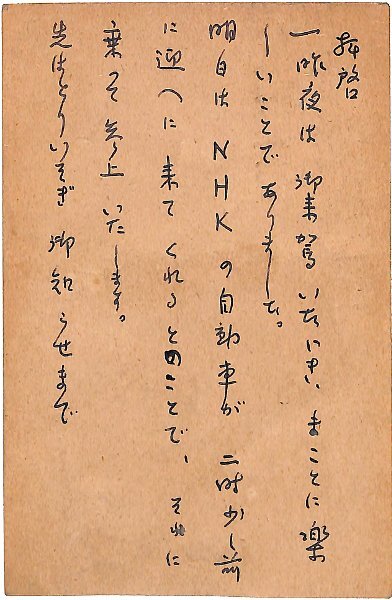 拝啓
一昨夜は御来駕いただきまことに楽
しいことでありました。
明日はNHKの自動車が二時少し前
に迎へに来てくれるとのことで、それに
乗つて参上いたします。
先はとりいそぎ御知らせまで